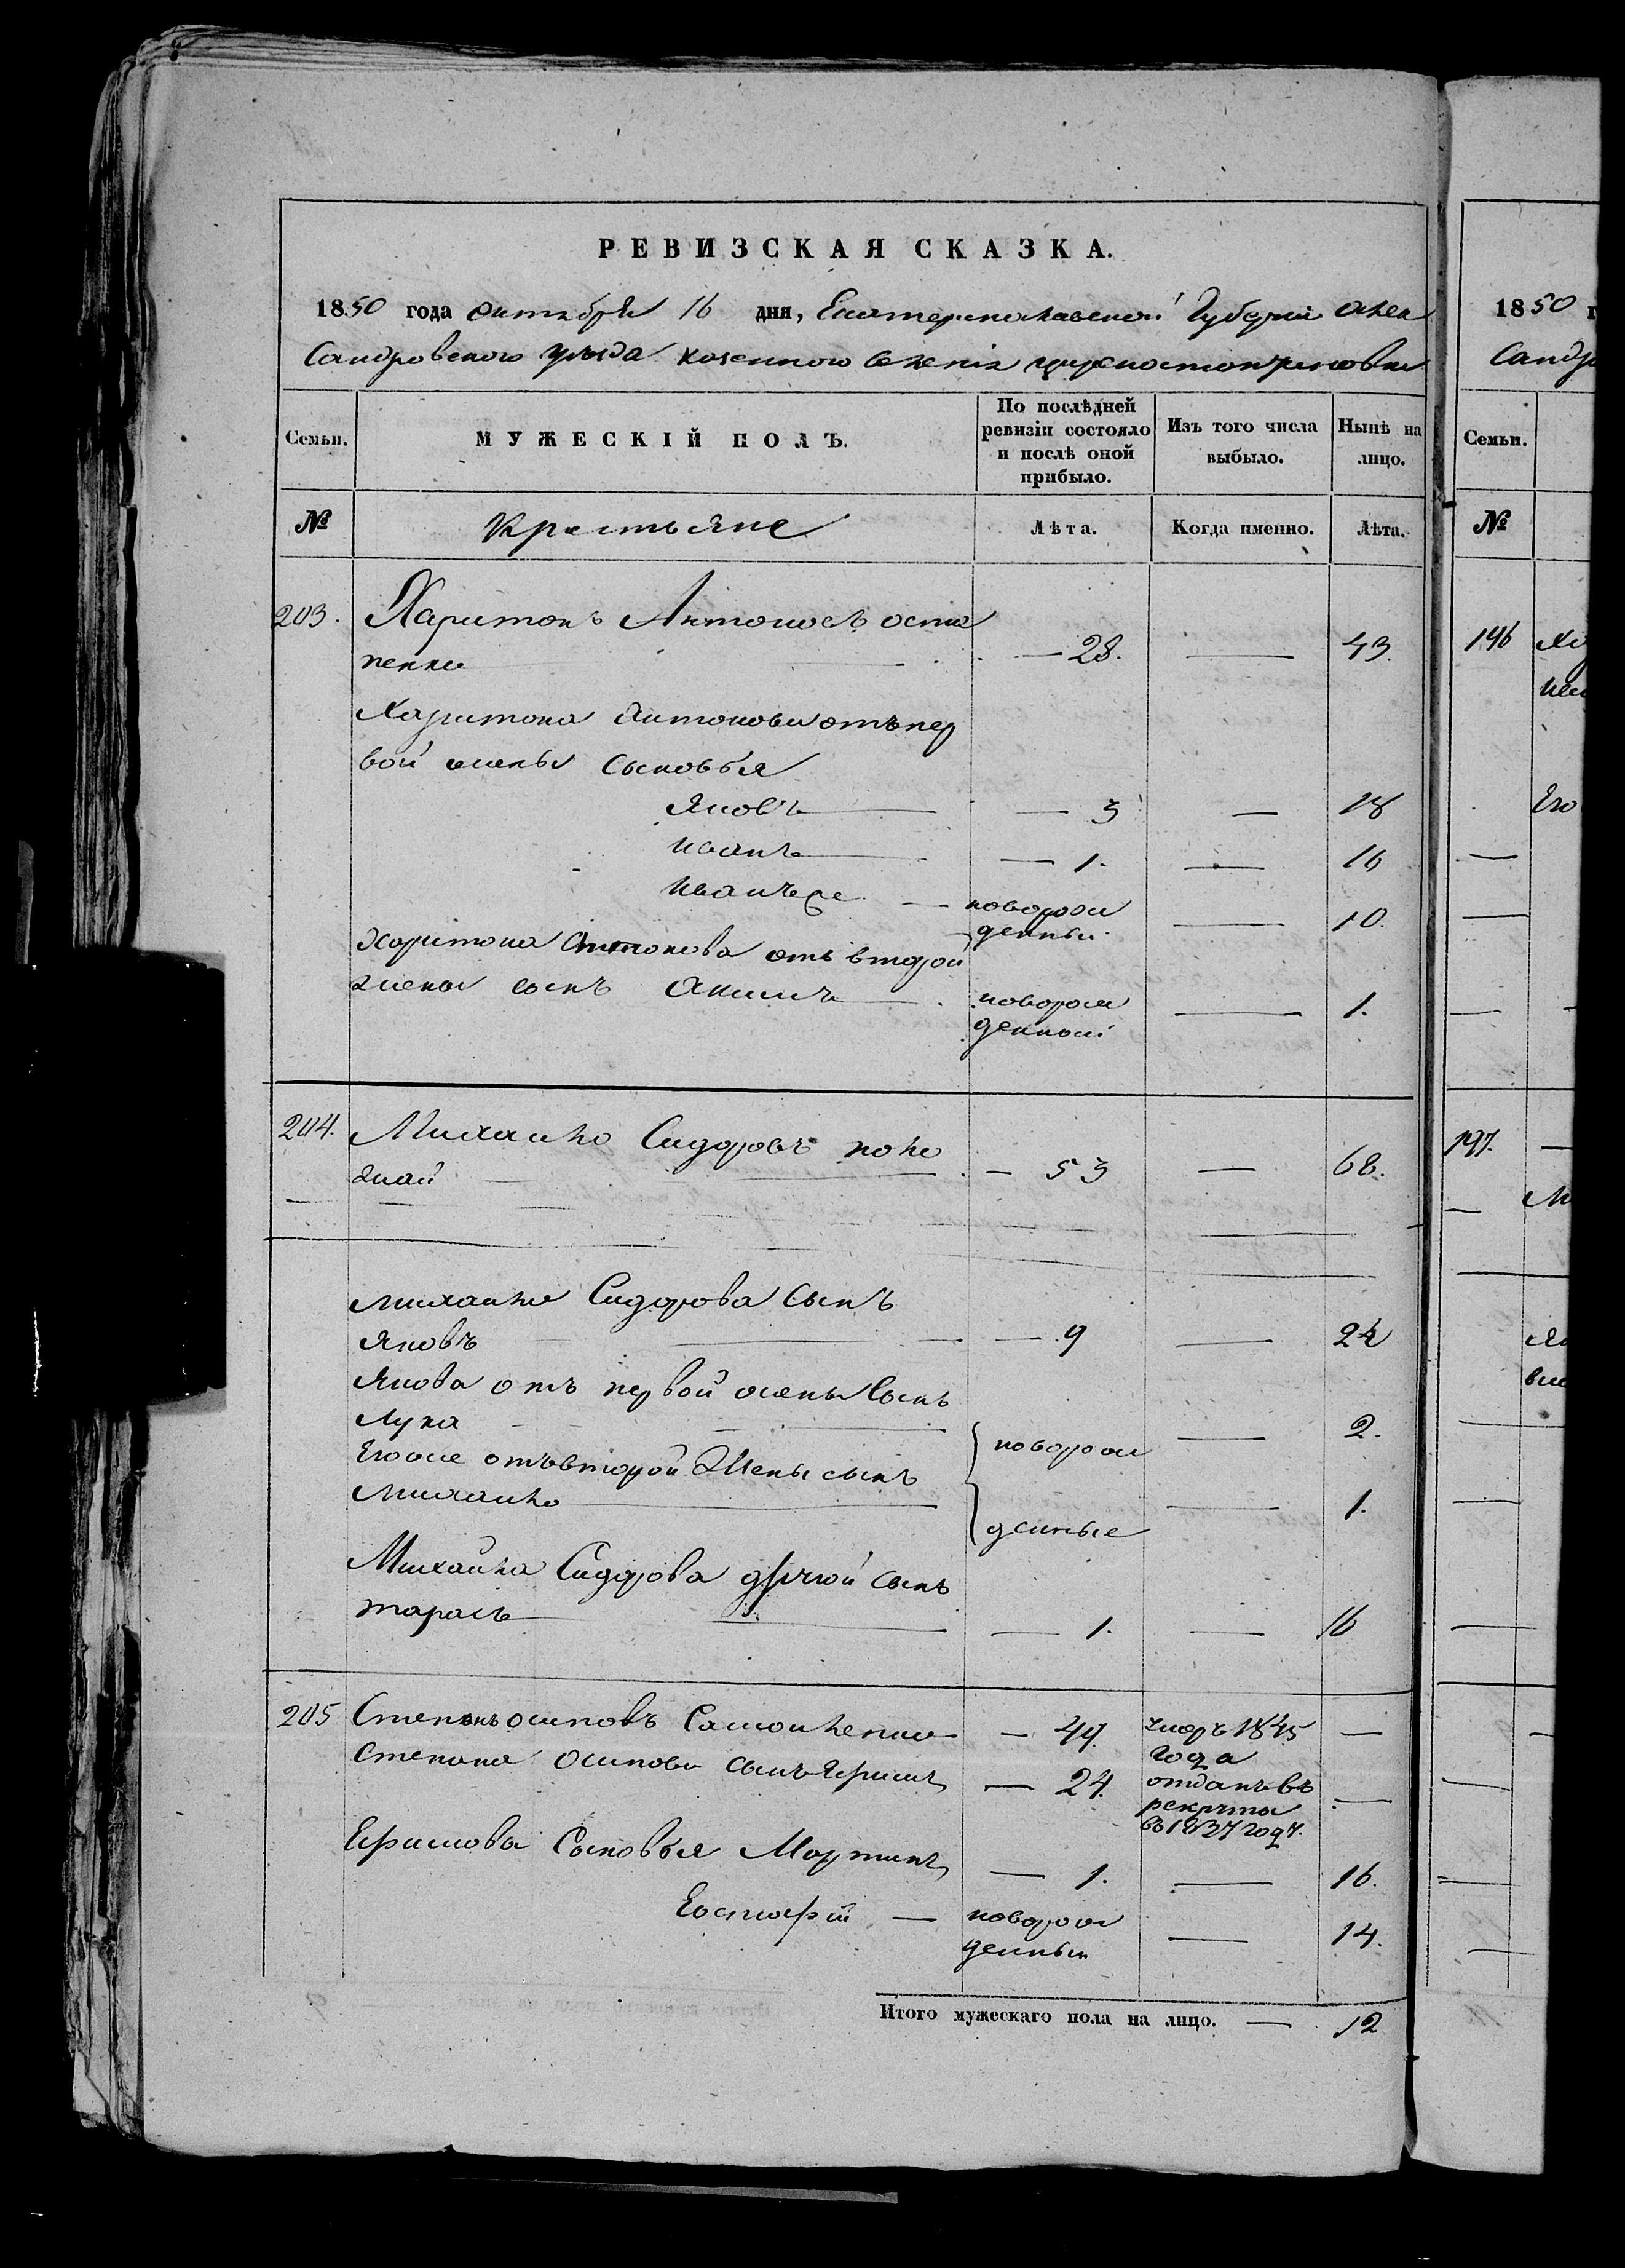 РЕВИЗСКАЯ СКАЗКА.
1850 года октября 16 дня, Екатеринославской Губернии Алек
сандровского уезда казенного селения
Семьи.
МУЖЕСКІЙ ПОЛЪ.
По послѣдней ревизіи состояло и послѣ оной прибыло.
Изъ того числа выбыло.
Нынѣ на лицо.
№
Крестьяне
Лѣта.
Когда именно.
Лѣта.
203. Харитонъ Антоновъ Оста
пенко — 28. — 43.
Харитона Антонова отъ пер
вой жены сыновья
Яковъ — 3 — 18
Иванъ — 1. — 16
Иванъ же — новорож
денный — 10.
Харитона Антонова отъ второй
жены сынъ Акимъ — новорож — 1.
денной
204. Михайло Сидоровъ
— 53 — 68.
Михайла Сидорова сынъ
Яковъ — 9 — 24
Якова отъ первой жены сынъ
Лука — 2.
Его же отъ второй жены сынъ новорож
Михайло — 1.
денные
Михайла Сидорова другой сынъ
Тарасъ — 1. — 16
205 Степанъ Осиповъ Самойленко — 49. умеръ 1845 —
года
Степана Осипова сынъ Ефимъ — 24. отданъ въ —
рекруты
въ 1837 году.
Ефимова сыновья Мартинъ — 1. — 16.
Евстафій — новорож — 14.
денный
Итого мужескаго пола на лицо. — 12
1850
Сандр
Семьи.
№
196
Его
197.